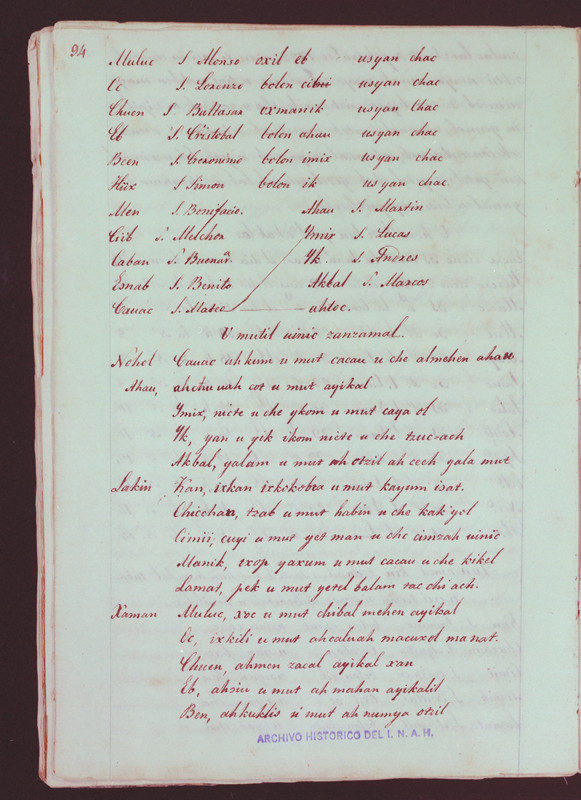 94
Muluc S Alonso oxil eb usyan chac
Oc S. Lorenzo bolon usyan chac
Chuen S. Baltasar oxmanik usyan Chac
Eb S. Cristobal bolon ahau usyan chac
Been S. Geronimo bolon imix usyan chac
Hiix S Simon bolon ik usyan chac.
Men S. Bonifacio. Ahau S. Martin
Ciib S. Melchor Ymix S. Lucas
Caban S. Buenar. Yk. S. Andres
Esnab S. Benito Akbal S. Marcos
Cauac S. Mateo uhtoc.
V mutil uinic zanzamal.
Nohol Cauac ah kum u mut cacau u che almehen ahau
Ahau, ahctuuah cot u mut ayikal
Ymix, nicte u che ykom u mut caya ol
Yk, yan u yik ikom nicte u che tzuc-ach
Akbal, yalam u mut ah otzil ah cech yala mut
Lakin Kan, ixkan ixkokobta u mut kayum isat.
Chicchan, tzab u mut habin u che kak yol
Cimii, cuyi u mut yet man u che cimzah uinic
Manik, exop yaxum u mut cacau u che kikel
Lamat, pek u mut yetel balam tac chi ach.
Xaman Muluc, xoc u mut chibal mehen ayikal
Oc, ixkili u mut ahcaluah macuxol manat.
Chuen, ahmen zacal ayikal xan
Eb, ahsiu u mut ah mahan ayikalil
Ben, ahkuklis u mut ah numya otzil
ARCHIVO HISTORICO DEL I. N. A. H.